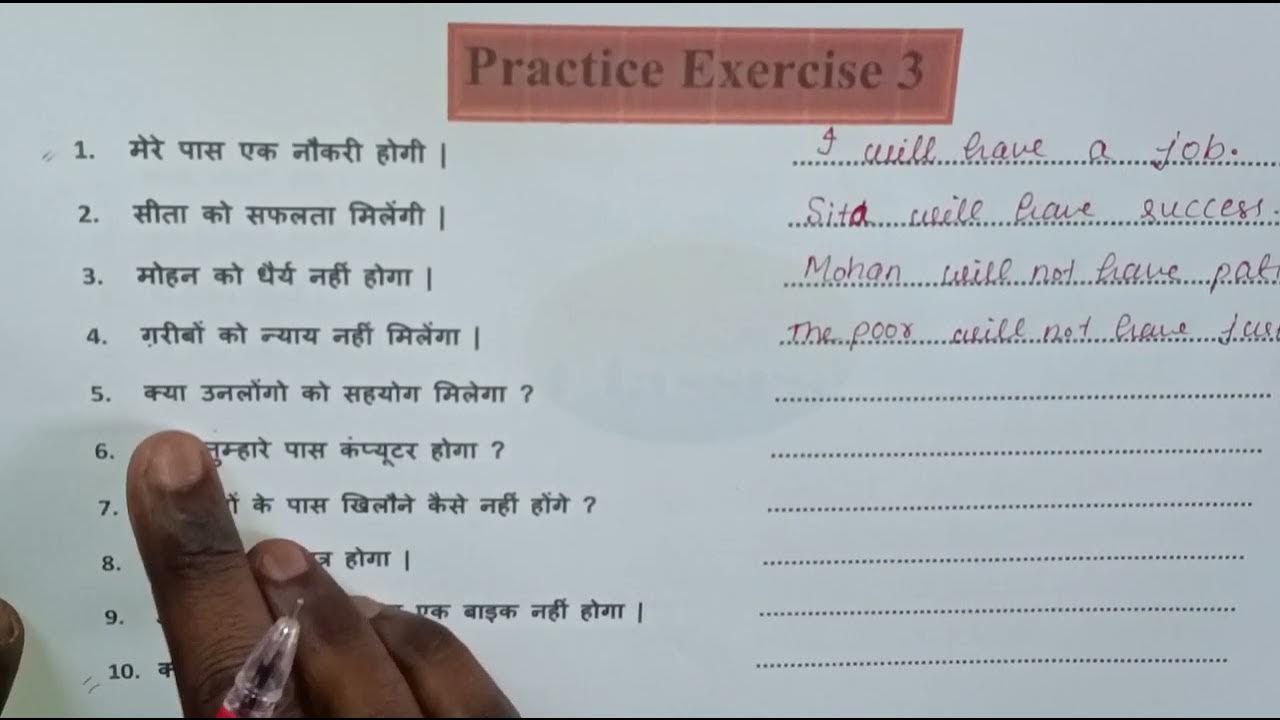 Practice Exercise 3
1. मेरे पास एक नौकरी होगी | I will have a job.
2. सीता को सफलता मिलेंगी | Sita will have success.
3. मोहन को धैर्य नहीं होगा | Mohan will not have
4. ग़रीबों को न्याय नहीं मिलेंगा | The poor will not have
5. क्या उनलोंगो को सहयोग मिलेगा ?
6. तुम्हारे पास कंप्यूटर होगा ?
7. के पास खिलौने कैसे नहीं होंगे ?
8. होगा |
9. एक बाइक नहीं होगा |
10.